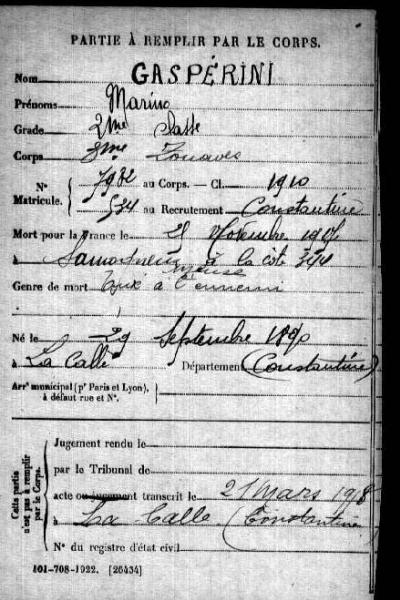 PARTIE À REMPLIR PAR LE CORPS.
Nom GASPÉRINI
Prénoms Marino
Grade 2me classe
Corps 8me Zouaves
N° Matricule. 7982 au Corps. — Cl. 1910
534 au Recrutement Constantine
Mort pour la France le 21 Novembre 1917
à Samogneux à la cote 344
Meuse
Genre de mort Tué à l'ennemi
Né le 29 Septembre 1890
à La Calle Département (Constantine)
Arrt municipal (pr Paris et Lyon),
à défaut rue et N°.
Cette partie n'est pas à remplir par le Corps.
Jugement rendu le
par le Tribunal de
acte ou jugement transcrit le 21 Mars 1918
à La Calle (Constantine
N° du registre d'état civil
101-708-1922. [26434]